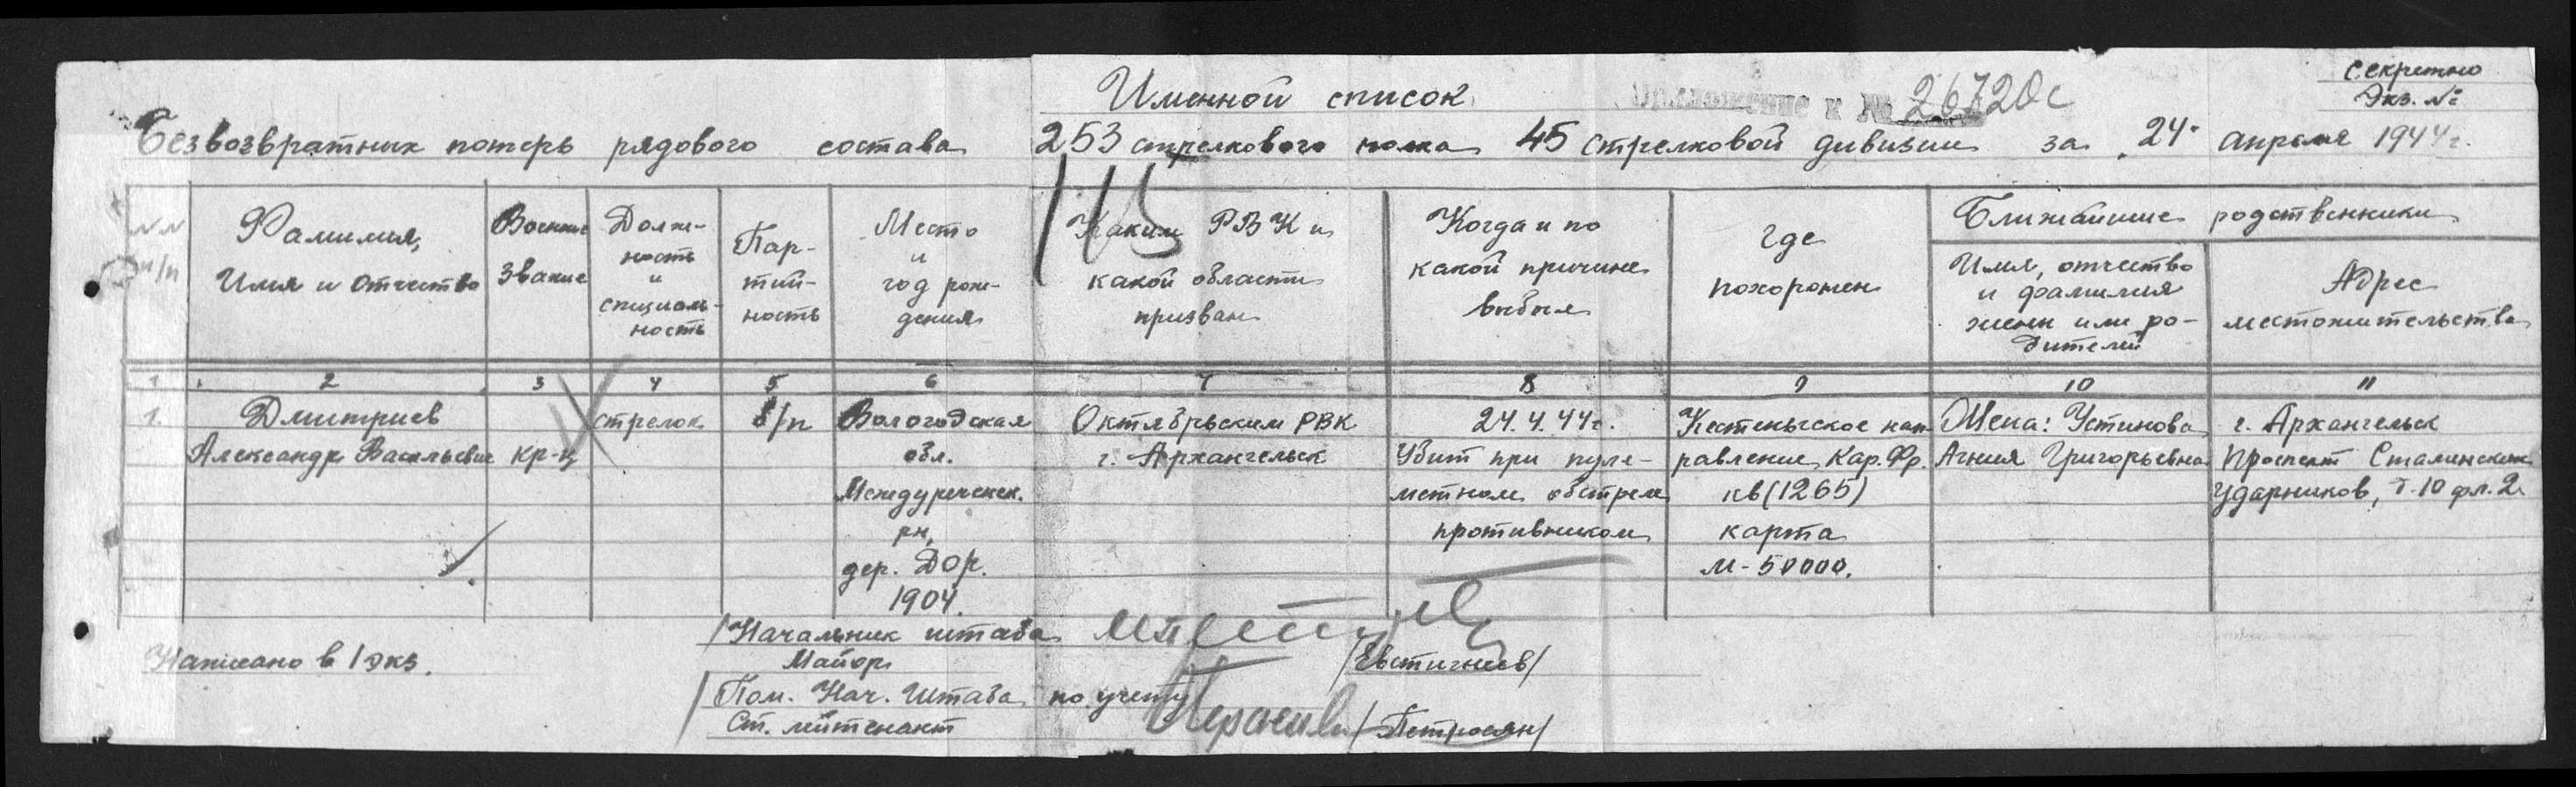 Секретно
Экз. №
Именной список
Приложение к № 26720с
Безвозвратних потерь рядового состава 253 стрелкового полка 45 стрелковой дивизии за "24" апреля 1944г.
115
№№ п/п
Фамилия,
Имя и Отчество
Военное
Звание
Долж-
ность
и
специаль-
ность
Пар-
тий-
ность
Место
и
год рож-
дения
Каким РВК и
какой области
призван
Когда и по
какой причине
выбыл
Где
похоронен
Ближайшие родственники
Имя, отчество
и фамилия
жены или ро-
дителей
Адрес
местожительства
1 2 3 4 5 6 7 8 9 10 11
1.
Дмитриев
Александр Васильевич
кр-ц
стрелок
б/п
Вологодская
обл.
Междуреченск.
рн,
дер. Дор.
1904.
Октябрьским РВК
г. Архангельск
24.4.44г.
Убит при пуле-
метном обстреле
противником
Кестеньгское нап-
равление, Кар.Фр.
кв(1265)
карта
М-50000.
Жена: Устинова
Агния Григорьевна
г. Архангельск
Проспект Сталинских
Ударников, д.10 фл.2
Начальник штаба
Майор
/Евстигнеев/
Написано в 1 экз.
Пом. Нач. Штаба по учету
Ст. лейтенант
/Петросян/